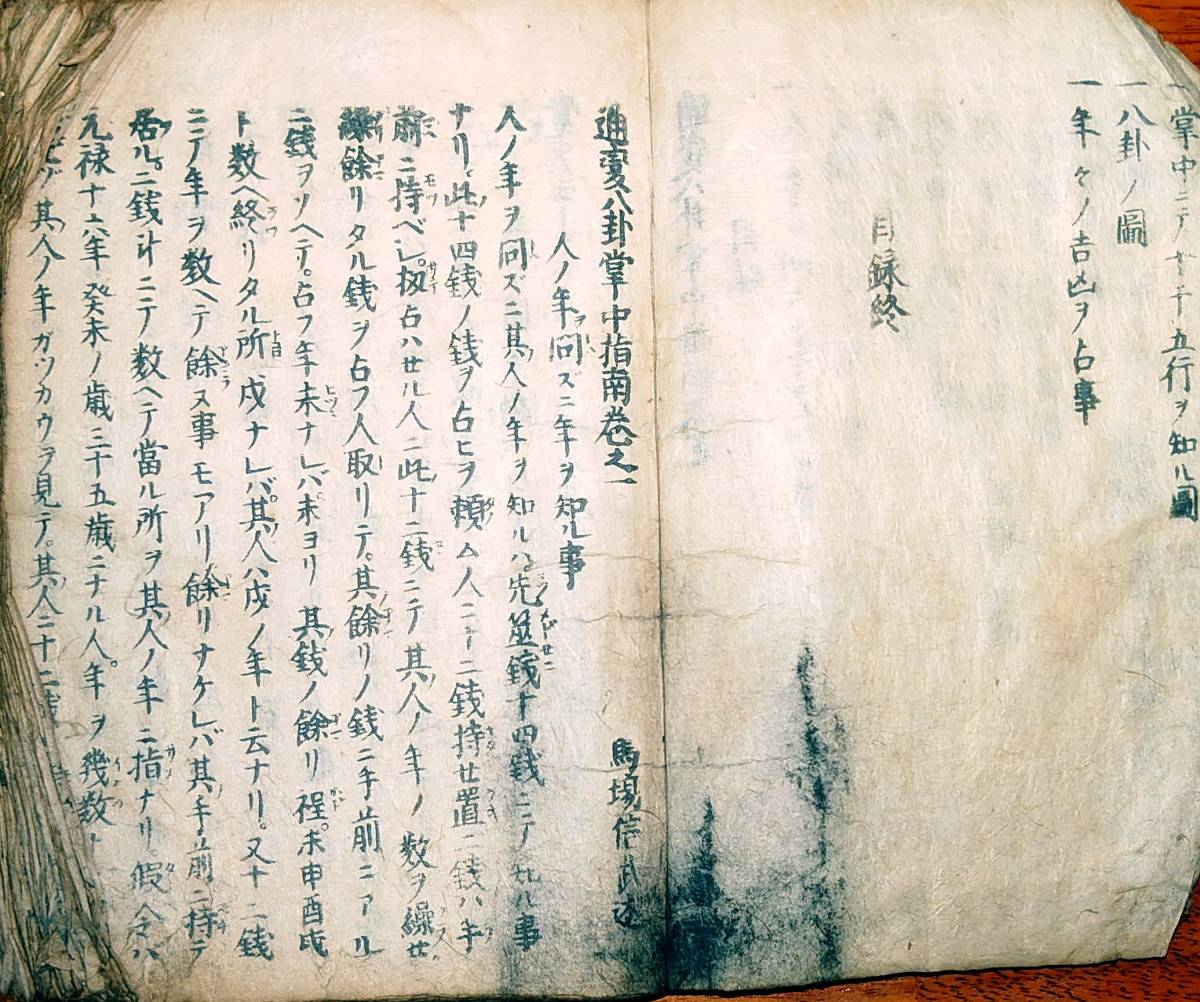 一掌中ニテ十干五行ヲ知ル圖
一八卦ノ圖
一年々ノ吉凶ヲ占事
目録終
通変八卦掌中指南巻之一
馬塲信武述
人ノ年ヲ問ズニ年ヲ知ル事
人ノ年ヲ問ズニ其人ノ年ヲ知ルハ先並銭十四銭ニテ知ル事
ナリ此十四銭ノ銭ヲ占ヒヲ頼ム人ニ十二銭持セ置二銭ハ手
前ニ持ベシ扨占ハセル人ニ此十二銭ニテ其人ノ年ノ数ヲ繰セ
餘リタル銭ヲ占フ人取リテ其餘リノ銭ニ手前ニアル
二銭ヲソヘテ占フ年未ナレバ未ヨリ其銭ノ餘リ程未申酉戌
ト数ヘ終リタル所戌ナレバ其人ハ戌ノ年ト云ナリ又十二銭
ニテ年ヲ数ヘテ餘ヌ事モアリ餘リナケレバ其手前ニ持テ
居ル二銭斗ニテ数ヘテ當ル所ヲ其人ノ年ニ指ナリ假令バ
元禄十六年癸未ノ歳三十五歳ニナル人年ヲ幾数ト
其人ノ年ガツカウヲ見テ其人ニ十二銭